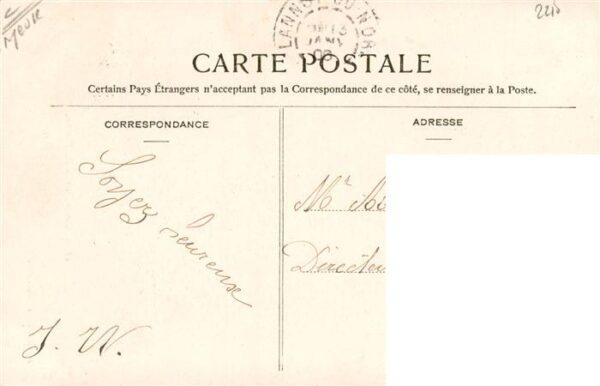 Meuse
2210
LANNOY DU NORD
13
JANV
CARTE POSTALE
Certains Pays Étrangers n'acceptant pas la Correspondance de ce côté, se renseigner à la Poste.
CORRESPONDANCE
Soyez
heureuse
J. W.
ADRESSE
Mr
Directeu